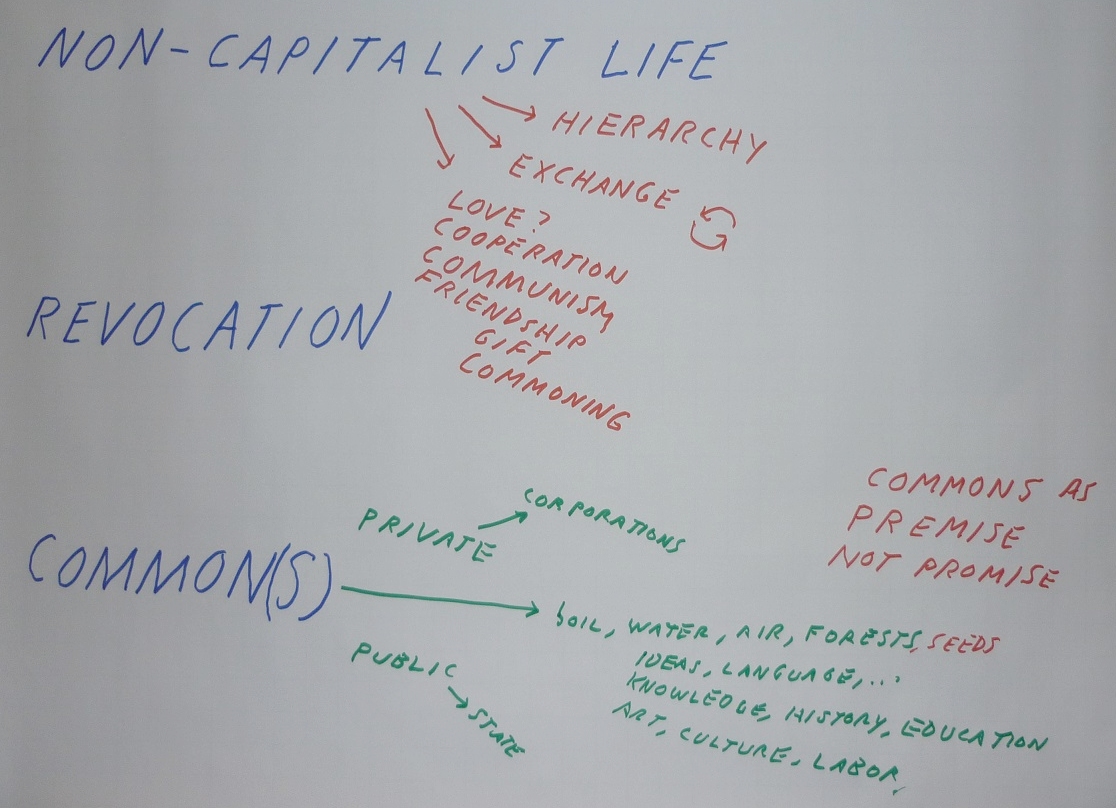 NON-CAPITALIST LIFE
HIERARCHY
EXCHANGE
LOVE?
COOPERATION
COMMUNISM
FRIENDSHIP
GIFT
COMMONING
REVOCATION
COMMONS AS
PREMISE
NOT PROMISE
CORPORATIONS
PRIVATE
COMMON(S)
SOIL, WATER, AIR, FORESTS, SEEDS
IDEAS, LANGUAGE,...
KNOWLEDGE, HISTORY, EDUCATION
ART, CULTURE, LABOR,
PUBLIC
STATE